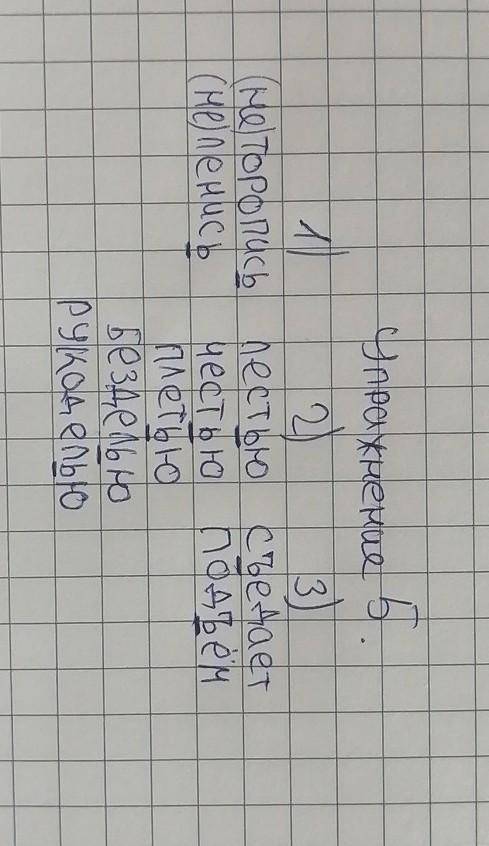 Упражнение 5.
1) 2) 3)
(не)торопись лестью съедает
(не)ленись честью подъём
плетью
безделью
рукоделью